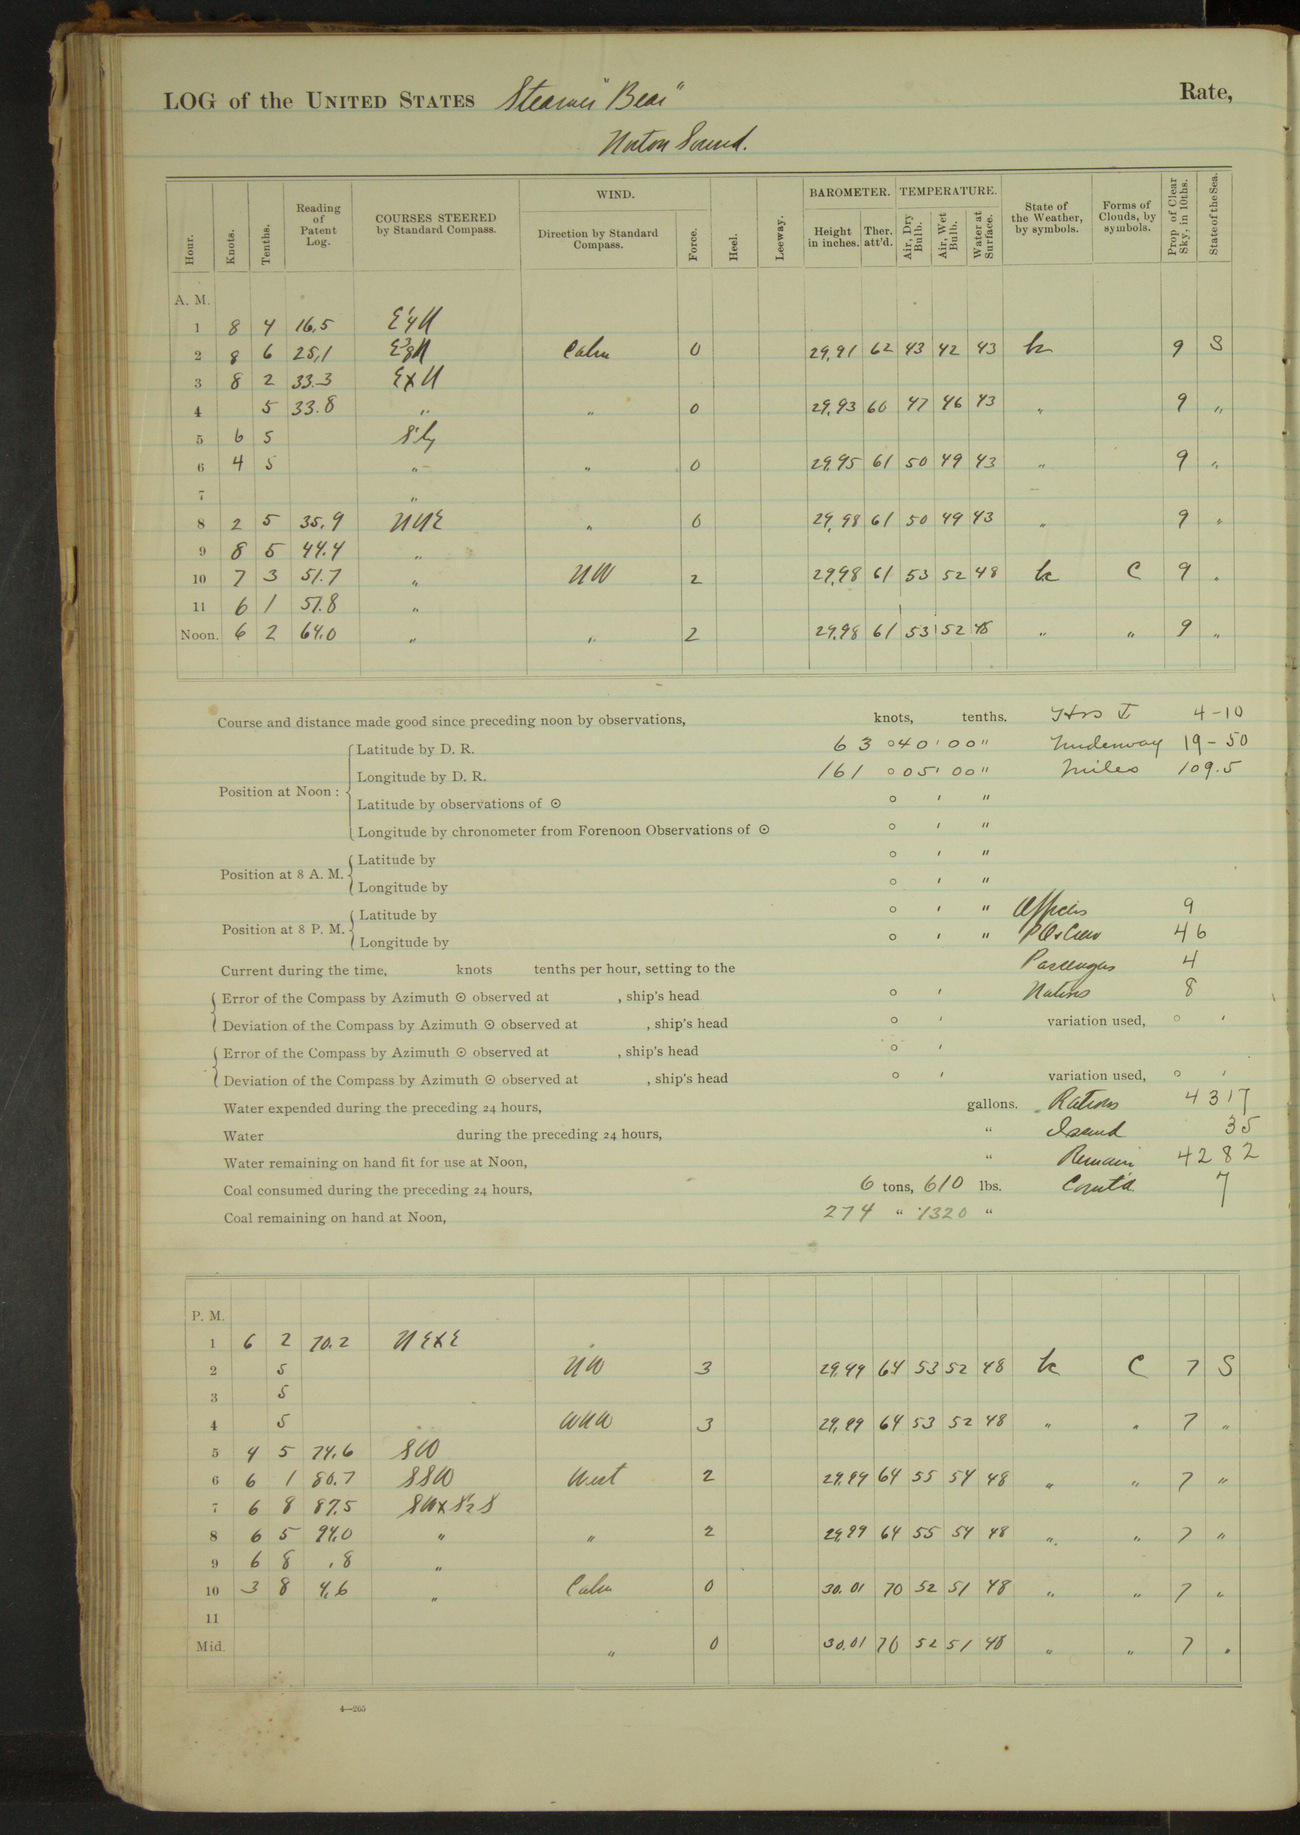 LOG of the UNITED STATES Steamer "Bear" Rate,
Norton Sound.
Hour. Knots. Tenths. Reading of Patent Log. COURSES STEERED by Standard Compass. WIND. Direction by Standard Compass. Force. Heel. Leeway. BAROMETER. Height in inches. Ther. att'd. TEMPERATURE. Air, Dry Bulb. Air, Wet Bulb. Water at Surface. State of the Weather, by symbols. Forms of Clouds, by symbols. Prop of Clear Sky, in 10ths. State of the Sea.
A. M.
1 8 4 16.5
2 8 6 25.1 Calm 0 29.91 62 43 42 43 bc 9 S
3 8 2 33.3 ExN
4 5 33.8 " " 0 29.93 60 47 46 43 " 9 "
5 6 5 S'ly
6 4 5 " " 0 29.95 61 50 49 43 " 9 "
7 "
8 2 5 35.9 NNE " 0 29.98 61 50 49 43 " 9 "
9 8 5 44.4 "
10 7 3 51.7 " NW 2 29.98 61 53 52 48 bc C 9 "
11 6 1 57.8 "
Noon. 6 2 64.0 " " 2 29.98 61 53 52 48 " " 9 "
Course and distance made good since preceding noon by observations, knots, tenths. Hrs 4-10
Latitude by D. R. 63 ° 40 ' 00 " Underway 19-50
Longitude by D. R. 161 ° 05 ' 00 " Miles 109.5
Position at Noon :
Latitude by observations of ☉ ° ' "
Longitude by chronometer from Forenoon Observations of ☉ ° ' "
Position at 8 A. M. Latitude by ° ' "
Longitude by ° ' "
Position at 8 P. M. Latitude by ° ' " Officers 9
Longitude by ° ' " POs Crew 46
Current during the time, knots tenths per hour, setting to the Passengers 4
Error of the Compass by Azimuth ☉ observed at , ship's head ° ' Natives 8
Deviation of the Compass by Azimuth ☉ observed at , ship's head ° ' variation used, ° '
Error of the Compass by Azimuth ☉ observed at , ship's head ° '
Deviation of the Compass by Azimuth ☉ observed at , ship's head ° ' variation used, ° '
Water expended during the preceding 24 hours, gallons. Rations 4317
Water during the preceding 24 hours, " Issued 35
Water remaining on hand fit for use at Noon, " Remain 4282
Coal consumed during the preceding 24 hours, 6 tons, 610 lbs. Comt'd 7
Coal remaining on hand at Noon, 274 " 1320 "
P. M.
1 6 2 70.2 NExE
2 5 NW 3 29.99 64 53 52 48 bc C 7 S
3 5
4 5 WNW 3 29.99 64 53 52 48 " " 7 "
5 4 5 74.6 SW
6 6 1 80.7 SSW West 2 29.99 64 55 54 48 " " 7 "
7 6 8 87.5
8 6 5 94.0 " " 2 29.99 64 55 54 48 " " 7 "
9 6 8 .8 "
10 3 8 4.6 " Calm 0 30.01 70 52 51 48 " " 7 "
11
Mid. " 0 30.01 70 52 51 48 " " 7 "
4—265